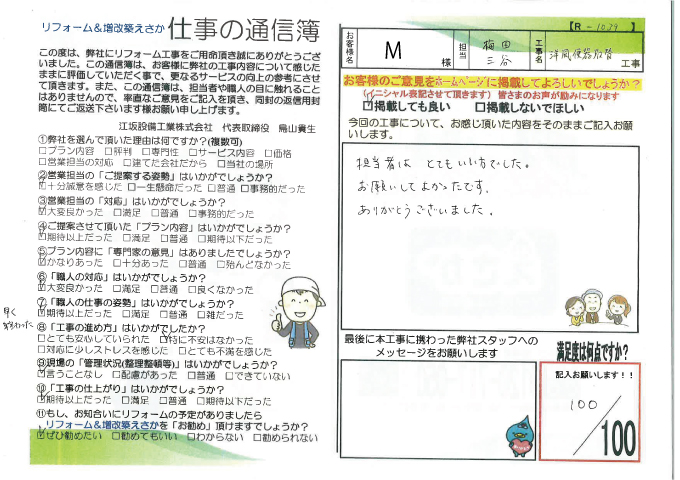 リフォーム&増改築えさか 仕事の通信簿
この度は、弊社にリフォーム工事をご用命頂き誠にありがとうござ
いました。この通信簿は、お客様に弊社の工事内容について感じた
ままに評価していただく事で、更なるサービスの向上の参考にさせ
て頂きます。また、この通信簿は、担当者や職人の目に触れること
はありませんので、率直なご意見をご記入を頂き、同封の返信用封
筒にてご返送下さいます様お願い申し上げます。
江坂設備工業株式会社 代表取締役 鳥山貴生
①弊社を選んで頂いた理由は何ですか?(複数可)
□プラン内容 □評判 □専門性 □サービス内容 □価格
□営業担当の対応 □建てた会社だから □当社の場所
②営業担当の「ご提案する姿勢」はいかがでしょうか?
☑十分誠意を感じた □一生懸命だった □普通 □事務的だった
③営業担当の「対応」はいかがでしょうか?
☑大変良かった □満足 □普通 □事務的だった
④ご提案させて頂いた「プラン内容」はいかがでしょうか?
☑期待以上だった □満足 □普通 □期待以下だった
⑤プラン内容に「専門家の意見」はありましたでしょうか?
☑かなりあった □十分あった □普通 □殆んどなかった
⑥「職人の対応」はいかがでしょうか?
☑大変良かった □満足 □普通 □良くなかった
⑦「職人の仕事の姿勢」はいかがでしょうか?
☑期待以上だった □満足 □普通 □雑だった
早く
終わった
⑧「工事の進め方」はいかがでしたか?
□とても安心していられた ☑特に不安はなかった
□対応に少しストレスを感じた □とても不満を感じた
⑨現場の「管理状況(整理整頓等)」はいかがでしょうか?
☑言うことなし □配慮があった □普通 □できていない
⑩「工事の仕上がり」はいかがでしょうか?
☑期待以上だった □満足 □普通 □期待以下だった
⑪もし、お知合いにリフォームの予定がありましたら
リフォーム&増改築えさかを「お勧め」頂けますでしょうか?
☑ぜひ勧めたい □勧めてもいい □わからない □勧められない
【R-1029】
お客様名 M 様 担当 梅田 三谷 工事名 洋風便器取替 工事
お客様のご意見をホームページに掲載してよろしいでしょうか?
(イニシャル表記させて頂きます) 皆さまのお声が励みになります
☑掲載しても良い □掲載しないでほしい
今回の工事について、お感じ頂いた内容をそのままご記入お願
いします。
担当者は とてもいい方でした。
お願いしてよかったです。
ありがとうございました。
最後に本工事に携わった弊社スタッフへの
メッセージをお願いします
満足度は何点ですか?
記入お願いします!!
100/100